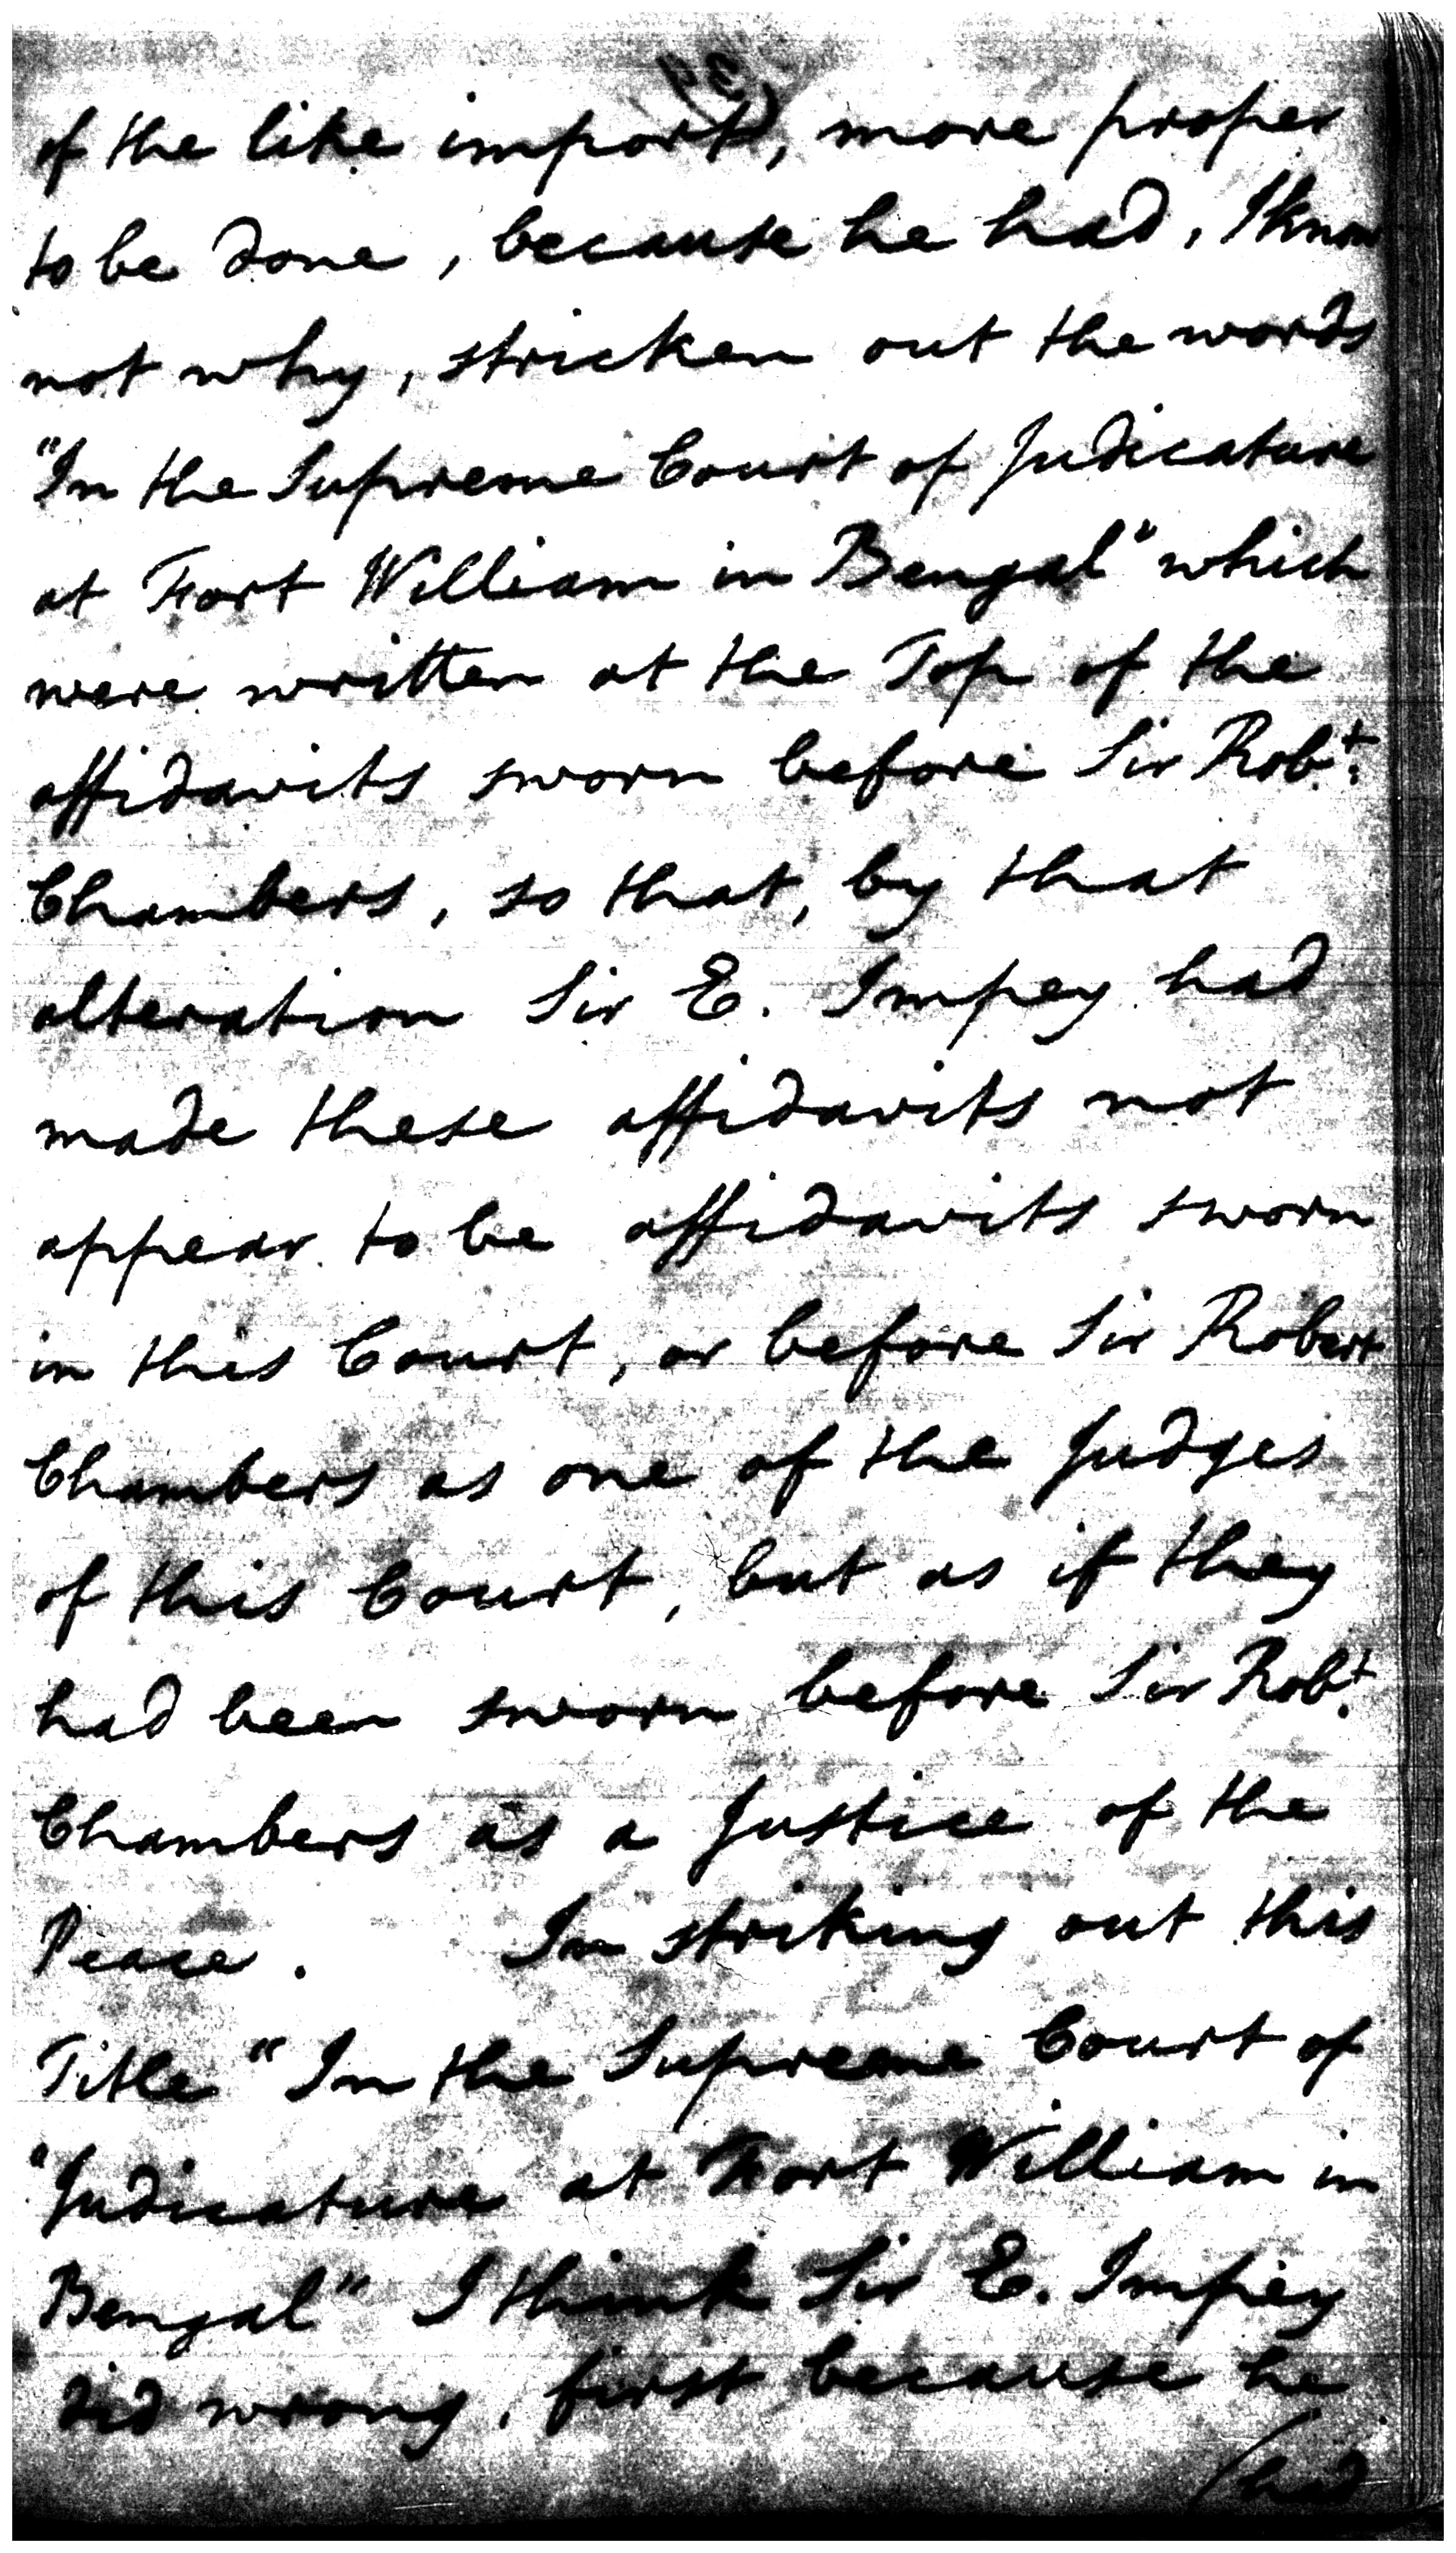 of the like import, more proper
to be done, because he had, I know
not why, stricken out the words
"In the Supreme Court of Judicature
at Fort William in Bengal" which
were written at the Top of the
affidavits sworn before Sir Robt.
Chambers, so that, by that
alteration Sir E. Impey had
made these affidavits not
appear to be affidavits sworn
in this Court, or before Sir Robert
Chambers as one of the Judges
of this Court, but as if they
had been sworn before Sir Robt.
Chambers as a Justice of the
Peace. In striking out this
Title "In the Supreme Court of
"Judicature at Fort William in
Bengal" I think Sir E. Impey
did wrong, first because he
(had